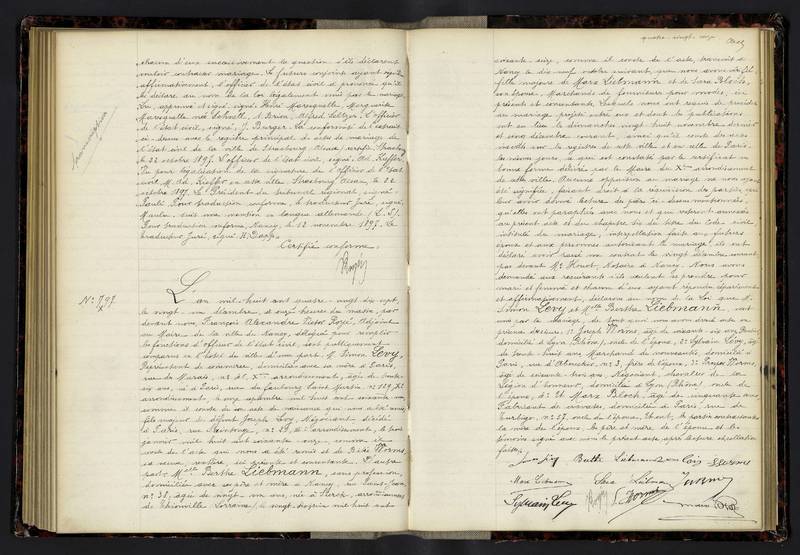 chacun d'eux successivement la question s'ils déclarent
vouloir contracter mariage. Les futurs conjoints ayant répondu
affirmativement, l'officier de l'état civil a prononcé qu'il
les déclare au nom de la loi légalement unis par le mariage.
Lu, approuvé et signé, signé: Henri Mareguelle, Marguerite
Mareguelle née Schnell, A. Brion, Alfred Seltzer. L'officier
de l'état civil, signé, J. Berger. La conformité de l'extrait
ci-dessus avec le registre principal des actes de mariage de
l'état civil de la ville de Strasbourg Alsace, certifié. Strasbourg
le 22 octobre 1897. L'officier de l'état civil, signé. Ad. Kieffer.
Vu pour légalisation de la signature de l'officier de l'état
civil, M. Ad. Kieffer en cette ville, Strasbourg Alsace, le 22
octobre 1897. Le Président du tribunal régional, signé:
Pauli. Pour traduction conforme, le traducteur juré, signé,
suit une mention en langue allemande (L. S.)
Pour traduction conforme, Nancy, le 12 novembre 1897. Le
traducteur Juré, signé
Certifié conforme,
Nº 797
L'an mil huit cent quatre-vingt dix sept,
le vingt-un décembre, à onze heures du matin, par
devant nous, François Alexandre Victor Rozé, Adjoint
au Maire de la ville de Nancy, délégué pour remplir
les fonctions d'officier de l'état civil, sont publiquement
comparus en l'hôtel de ville d'une part, M. Simon Levy,
Représentant de commerce, domicilié avec sa mère à Paris,
rue du Marais, nº 31, Xme arrondissement, âgé de trente
six ans, né à Paris, rue du Faubourg Saint Martin, nº 129, Xe
arrondissement, le onze septembre mil huit cent soixante un,
comme il conste de son acte de naissance qui nous a été remis,
fils majeur de défunt Joseph Levy, Négociant, décédé
à Paris, rue nº 29, arrondissement, le
janvier mil huit cent soixante onze, comme il
conste de l'acte qui nous a été remis et de Worms,
sa veuve, rentière, ici présente et consentante. D'autre
part, Melle Berthe Liebmann, sans profession,
domiciliée avec ses père et mère à Nancy, rue Saint-Jean,
nº 38, âgée de vingt-un ans, née à Sierck, arrondissement
de Thionville Lorraine, le vingt mil huit cent
quatre-vingt-onze
soixante seize, comme il conste de l'acte, transcrit à
Nancy le dix neuf octobre suivant, que nous avons vérifié,
fille majeure de Marx Liebmann et de Sara Bloch,
son épouse, Marchands de fournitures pour modes, ici
présents et consentants. Lesquels nous ont requis de procéder
au mariage projeté entre eux et dont les publications
ont eu lieu le dimanche vingt huit novembre dernier
et cinq décembre courant, ainsi qu'il conste des actes
inscrits sur les registres de cette ville et en celle de Paris,
les mêmes jours, ce qui est constaté par le certificat en
bonne forme délivré par le Maire du Xme arrondissement
de cette ville. Aucune opposition au mariage ne nous ayant
été signifiée, faisant droit à la réquisition des parties après
leur avoir donné lecture des pièces ci-dessus mentionnées,
qu'elles ont paraphées avec nous et qui resteront annexées
au présent acte et du chapitre six du titre du Code civil
intitulé du mariage, interpellation faite aux futurs
époux et aux personnes autorisant le mariage, ils ont
déclaré avoir passé un contrat le vingt décembre courant
par devant Me Houot, Notaire à Nancy. Nous avons
demandé aux requérants s'ils veulent se prendre pour
mari et femme et chacun d'eux ayant répondu séparément
et affirmativement, déclarons au nom de la loi que M.
Simon Levy et Melle Berthe Liebmann, sont
unis par le Mariage, de tout quoi nous avons dressé acte en
présence des sieurs: 1º Joseph Worms, âgé de soixante-six ans, Rentier,
domicilié à Lyon (Rhône), oncle de l'époux; 2º Sylvain Levy, âgé
de trente huit ans, Marchand de nouveautés, domicilié à
Paris, rue d'Aboukir, nº 3, frère de l'époux; 3º Worms,
âgé de soixante-trois ans, Négociant, chevalier de la
Légion d'honneur, domicilié à Lyon (Rhône), oncle de
l'époux; 4º Et Marx Bloch, âgé de cinquante ans,
Fabricant de cravates, domicilié à Paris, rue de
Turbigo, nº 27, oncle de l'épouse. Et ont, les parties contractantes,
la mère de l'époux, les père et mère de l'épouse et les
témoins signé avec nous le présent acte après lecture et collation
faites,
Berthe Liebmann Lévy Worms
Marx Liebmann Sara Liebmann J Worms
Sylvain Levy Rozé Worms Marx Bloch